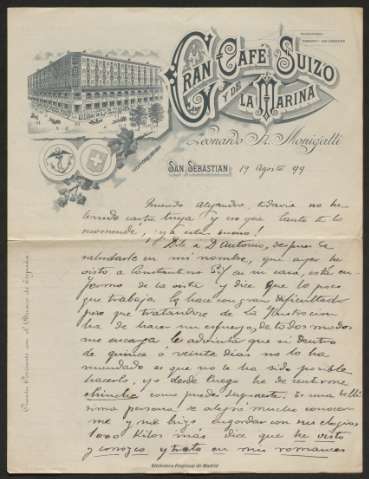 GRAN CAFÉ SUIZO
Y DE
LA MARINA
Leonardo A. Monigatti
SAN SEBASTIAN 19 Agosto 99
Querido Alejandro, todavia no he
tenido carta tuya y eso que tanto te lo
recomendé, ¡ya estu bueno!
Dile a D Antonio, despues de
saludarle en mi nombre, que ayer he
visto a Constantino Gil en su casa, está en-
fermo de la vista y dice que lo poco
que trabaja lo hace con gran dificultad
pero que tratandose de La Ilustracion
ha de hacer un esfuerzo, de todos modos
me encarga le advierta que si dentro
de quince o veinte dias no lo ha
mandado es que no le ha sido posible
hacerlo, yo desde luego he de sentirme
chinche como puedes suponerte. Es una bellí-
sima persona, se alegró mucho conocer
me y me hizo engordar con sus elogios
1000 Kilos mas dice que he visto
y conozco y trato en mis romances
Biblioteca Regional de Madrid